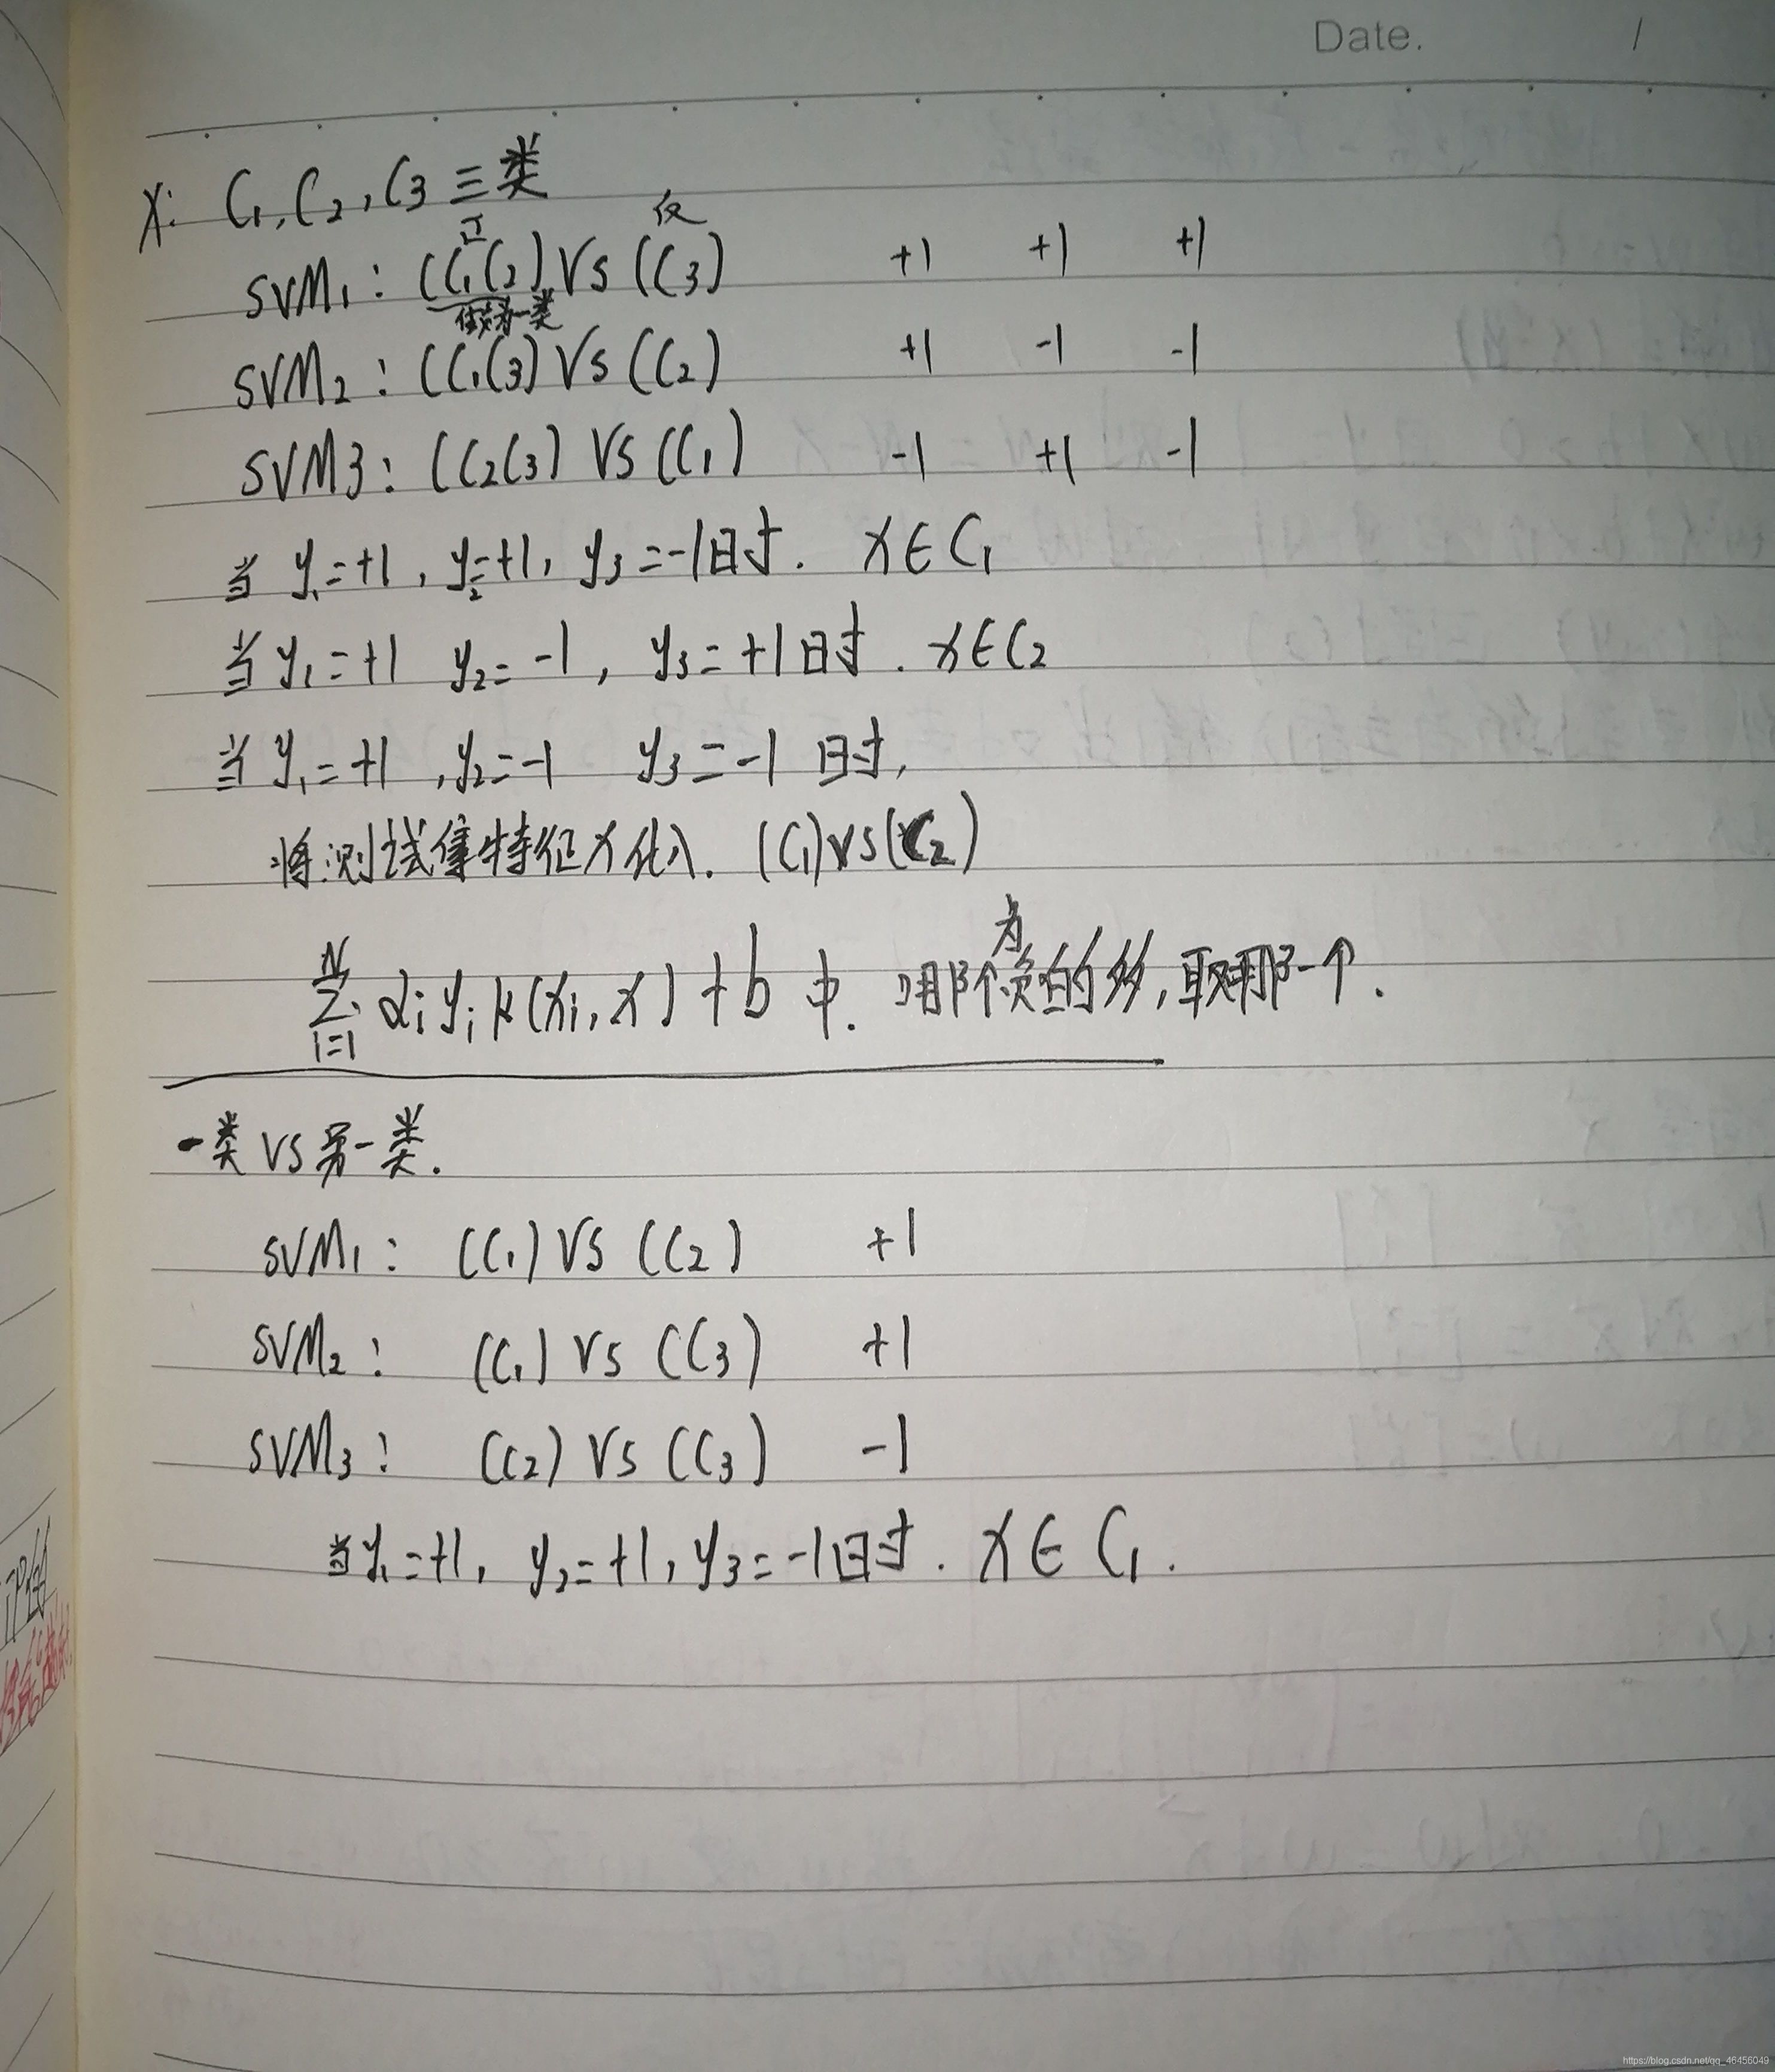 Date. /
X: C₁, C₂, C₃ 三类
正 反
SVM₁: (C₁C₂) VS (C₃) +1 +1 +1
做为一类
SVM₂: (C₁C₃) VS (C₂) +1 -1 -1
SVM3: (C₂C₃) VS (C₁) -1 +1 -1
当 y₁=+1, y₂=+1, y₃=-1时. X∈C₁
当 y₁=+1 y₂=-1, y₃=+1时. X∈C₂
当 y₁=+1, y₂=-1 y₃=-1 时,
将测试集特征X代入. (C₁)VS(C₂)
∑ᵢ₌₁ᴺ αᵢyᵢk(xᵢ,x)+b 中. 哪个为负的多,取哪一个.
一类 VS 另一类.
SVM₁: (C₁) VS (C₂) +1
SVM₂: (C₁) VS (C₃) +1
SVM₃: (C₂) VS (C₃) -1
当y₁=+1, y₂=+1, y₃=-1时. X∈C₁.
https://blog.csdn.net/qq_46456049